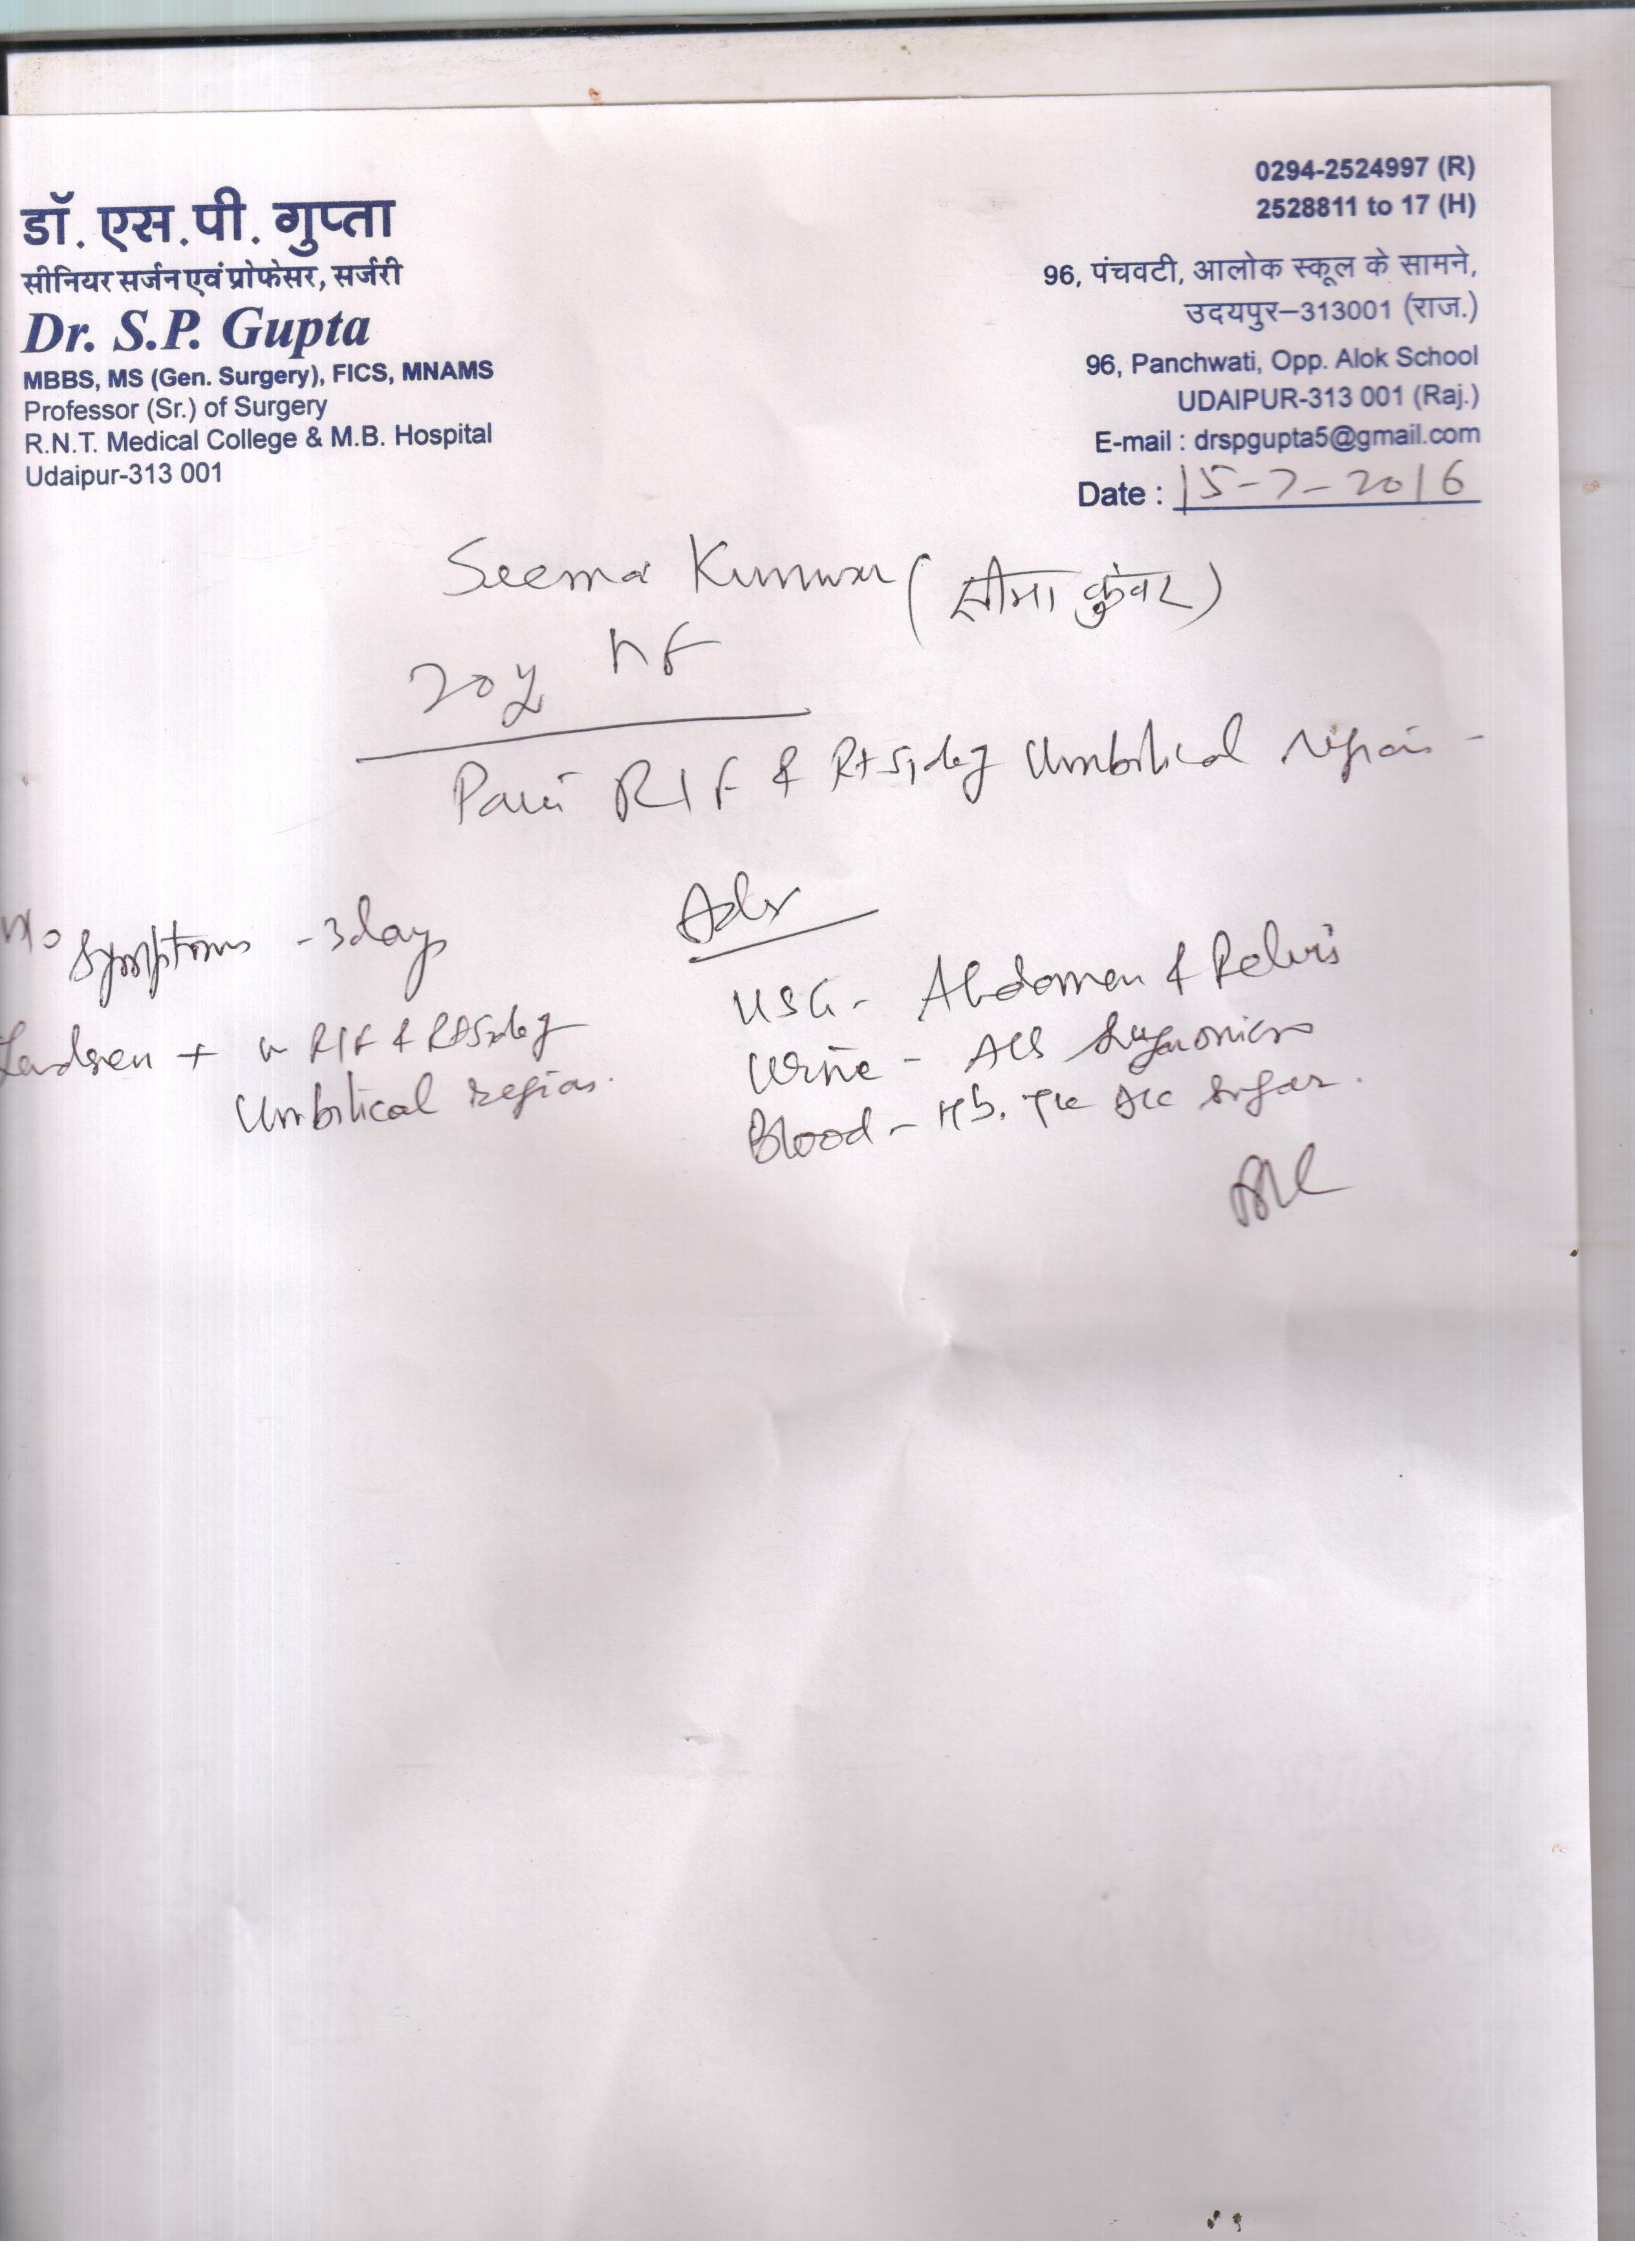 डॉ. एस.पी. गुप्ता
सीनियर सर्जन एवं प्रोफेसर, सर्जरी
Dr. S.P. Gupta
MBBS, MS (Gen. Surgery), FICS, MNAMS
Professor (Sr.) of Surgery
R.N.T. Medical College & M.B. Hospital
Udaipur-313 001
0294-2524997 (R)
2528811 to 17 (H)
96, पंचवटी, आलोक स्कूल के सामने,
उदयपुर–313001 (राज.)
96, Panchwati, Opp. Alok School
UDAIPUR-313 001 (Raj.)
E-mail : drspgupta5@gmail.com
Date : 15-7-2016
Seema Kunwar (सीमा कुंवर)
20y
Pain RIF & Rt side of Umbilical region -
Symptoms - 3 days
+ in RIF & Rt side of
Umbilical region.
Adv
USG - Abdomen & Pelvis
Urine - Alb Sugar micro
Blood - Hb. TLC DLC Sugar.